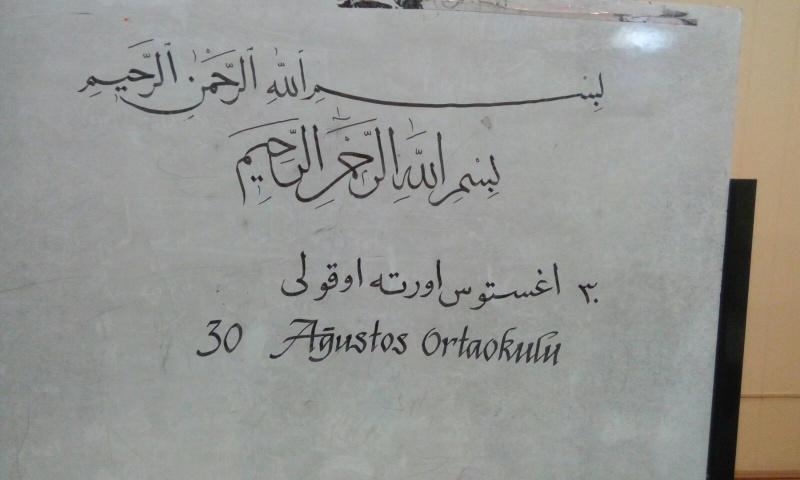 بِسْمِ اللّٰهِ الرَّحْمٰنِ الرَّحِيمِ
بِسْمِ اللّٰهِ الرَّحْمٰنِ الرَّحِيمِ
٣٠ اغستوس اورته اوقولی
30 Ağustos Ortaokulu